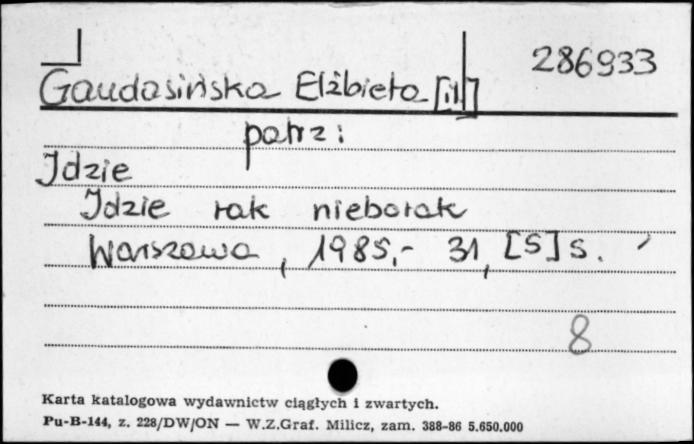 286933
Gaudasińska Elżbieta [il]
patrz:
Idzie
Idzie rak nieborak
Warszawa, 1985,- 31, [5] s.
8
Karta katalogowa wydawnictw ciągłych i zwartych.
Pu-B-144, z. 228/DW/ON — W.Z.Graf. Milicz, zam. 388-86 5.650.000